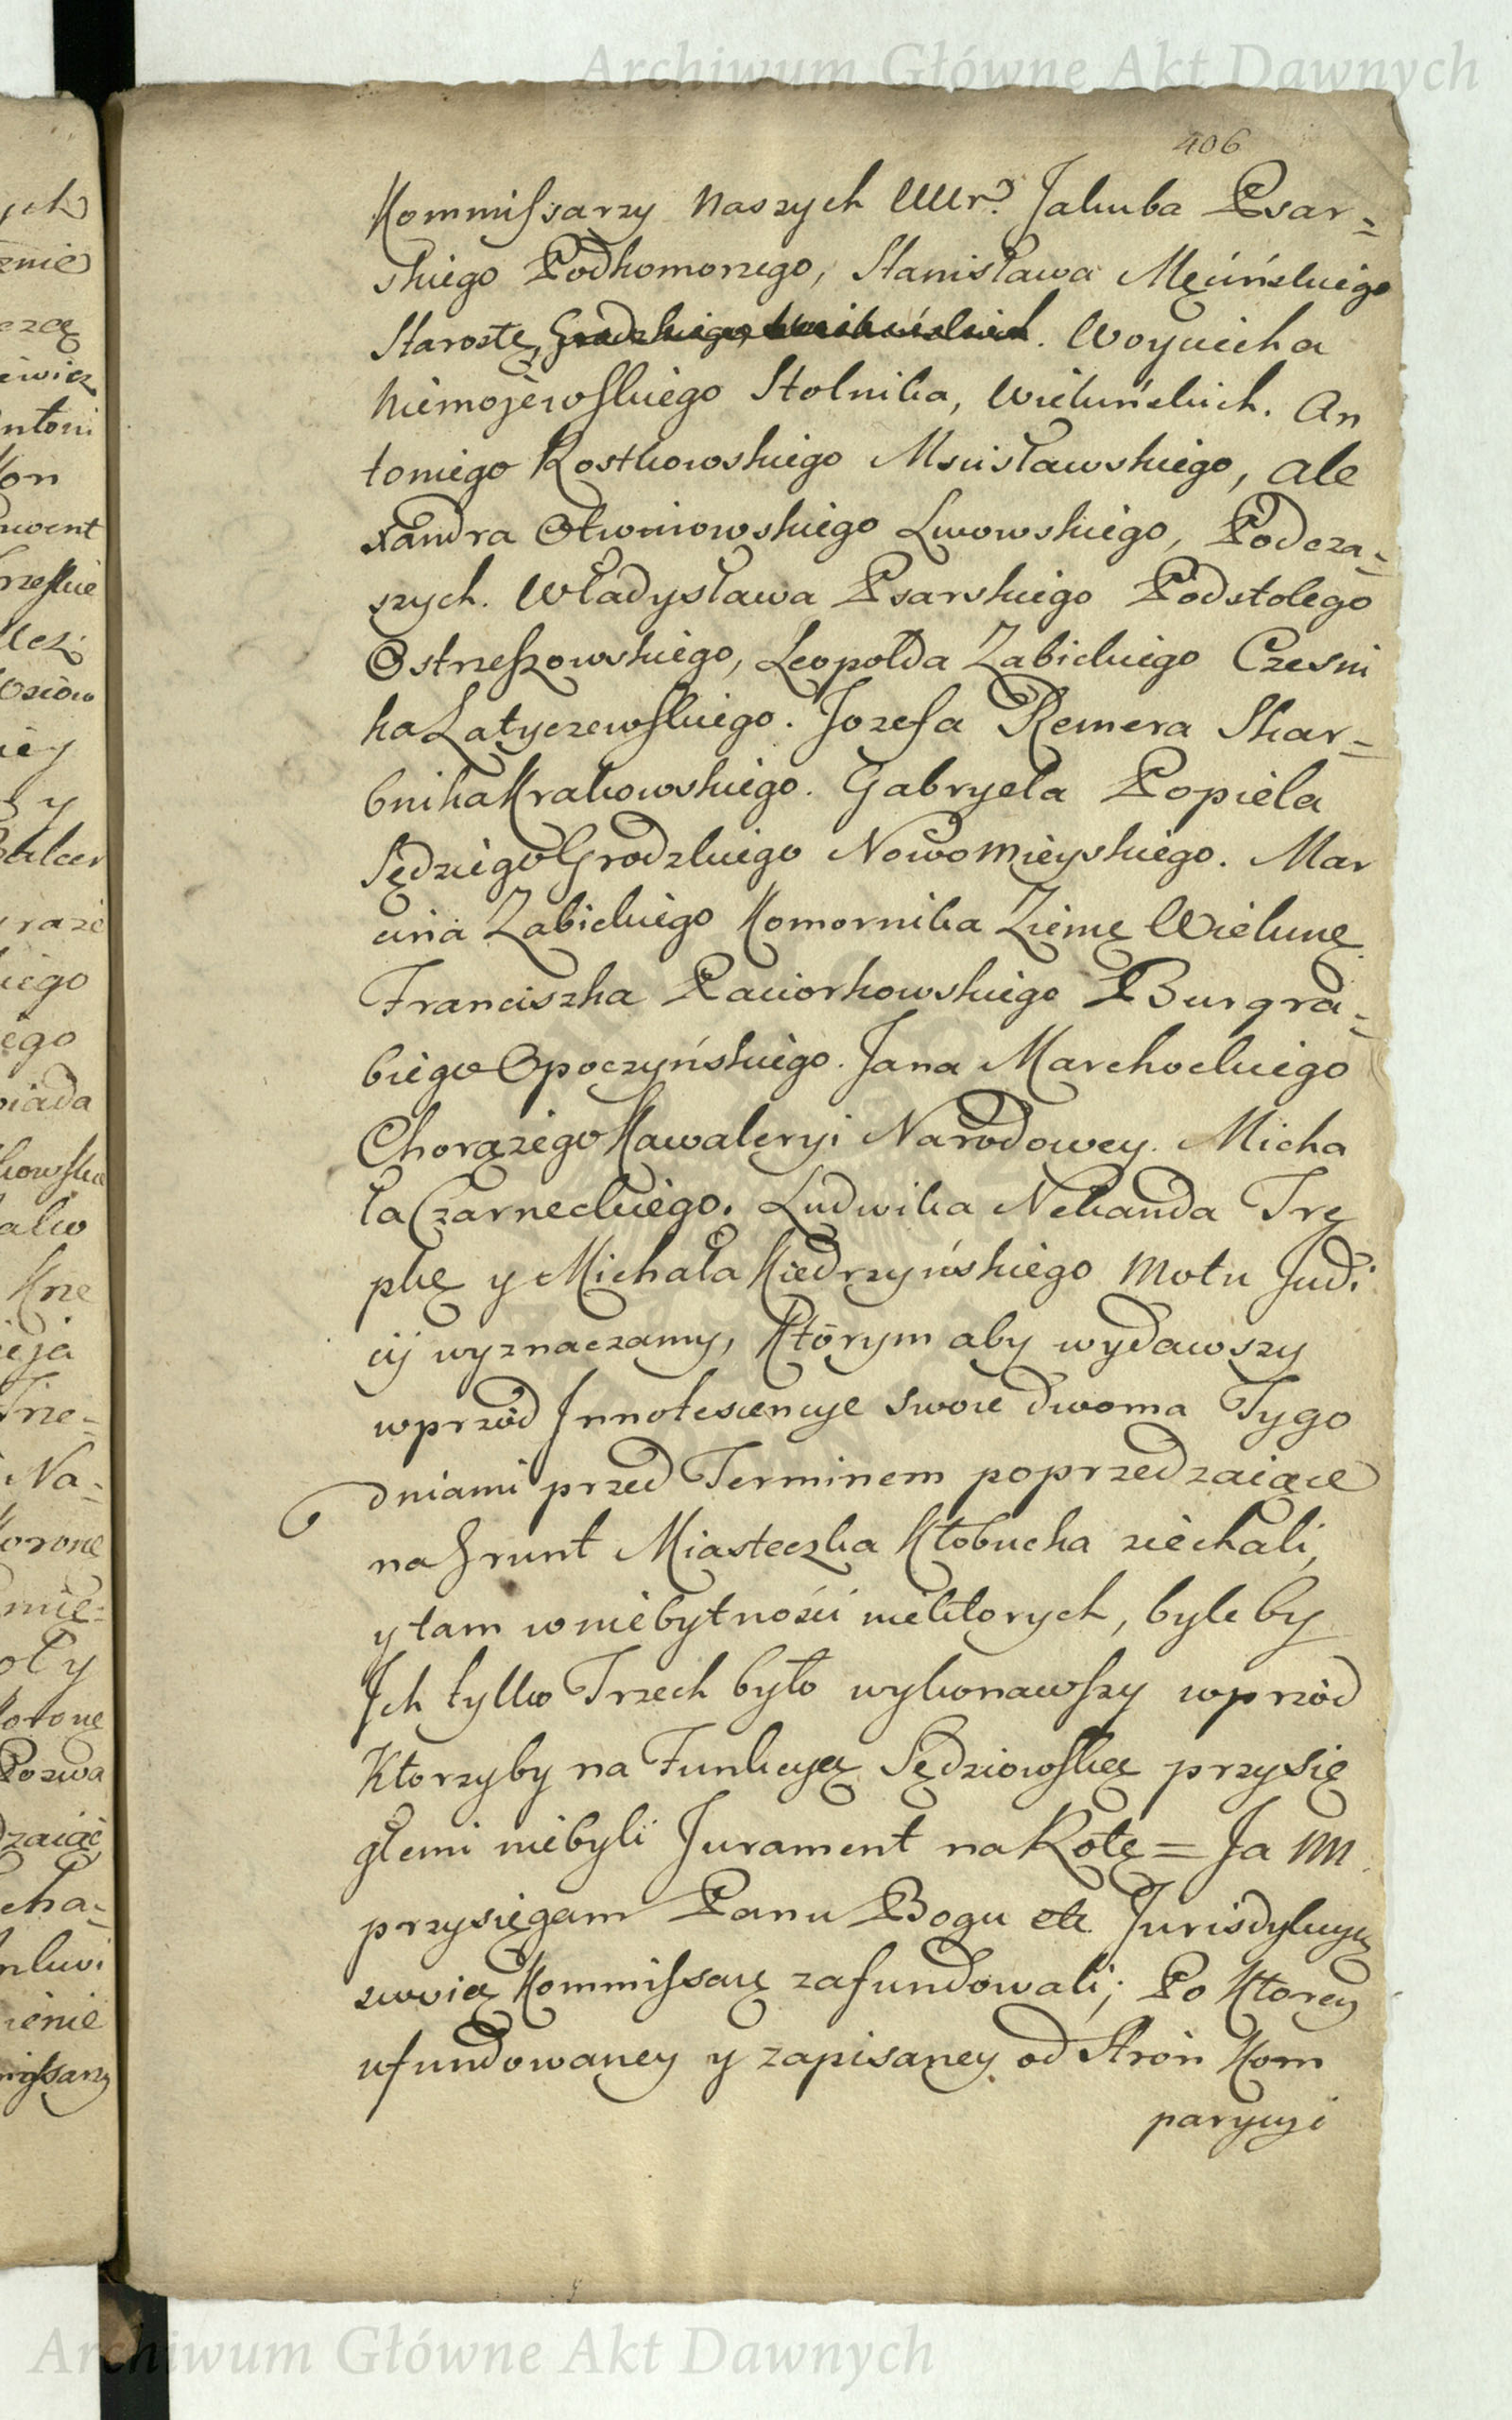 Archiwum Główne Akt Dawnych
406
Kommissarzy Naszych UUr. Jakuba Psar=
skiego Podkomorzego, Stanisława Męcińskiego
Starostę, Grodzkiego Wieluńskich. Woyciecha
Niemojewskiego Stolnika, Wieluńskich. An
toniego Rostkowskiego Mscisławskiego, Ale
xandra Otwinowskiego Lwowskiego, Podcza=
szych. Władysława Psarskiego Podstolego
Ostrzeszowskiego, Leopolda Zabickiego Czesni
ka Latyczewskiego. Jozefa Remera Skar=
bnika Krakowskiego. Gabryela Popiela
Sędziego Grodzkiego Nowomieyskiego. Mar
cina Zabickiego Komornika Ziemę Wielunę
Franciszka Paciorkowskiego Burgra=
biego Opoczyńskiego. Jana Marchockiego
Chorążego Kawaleryi Narodowey. Micha
ła Czarneckiego. Ludwika Nekanda Trę
pkę y Michała Kiedrzyńskiego Motu Judi
cij wyznaczamy, Którym aby wydawszy
wprzód Innotescencye swoie dwoma Tygo
dniami przed Terminem poprzedzaiące
na Grunt Miasteczka Kłobucka ziechali,
y tam w niebytności niektorych, byle by
Ich tylko Trzech było wykonawszy wprzód
Ktorzyby na Funkcyą Sędziowską przysię
głemi niebyli Jurament na Rotę = Ja NN.
przysięgam Panu Bogu etc Jurisdykcyą
swoię Kommissaę zafundowali; Po Ktorey
ufundowaney y zapisaney od Strón Kom
parycyi
Archiwum Główne Akt Dawnych